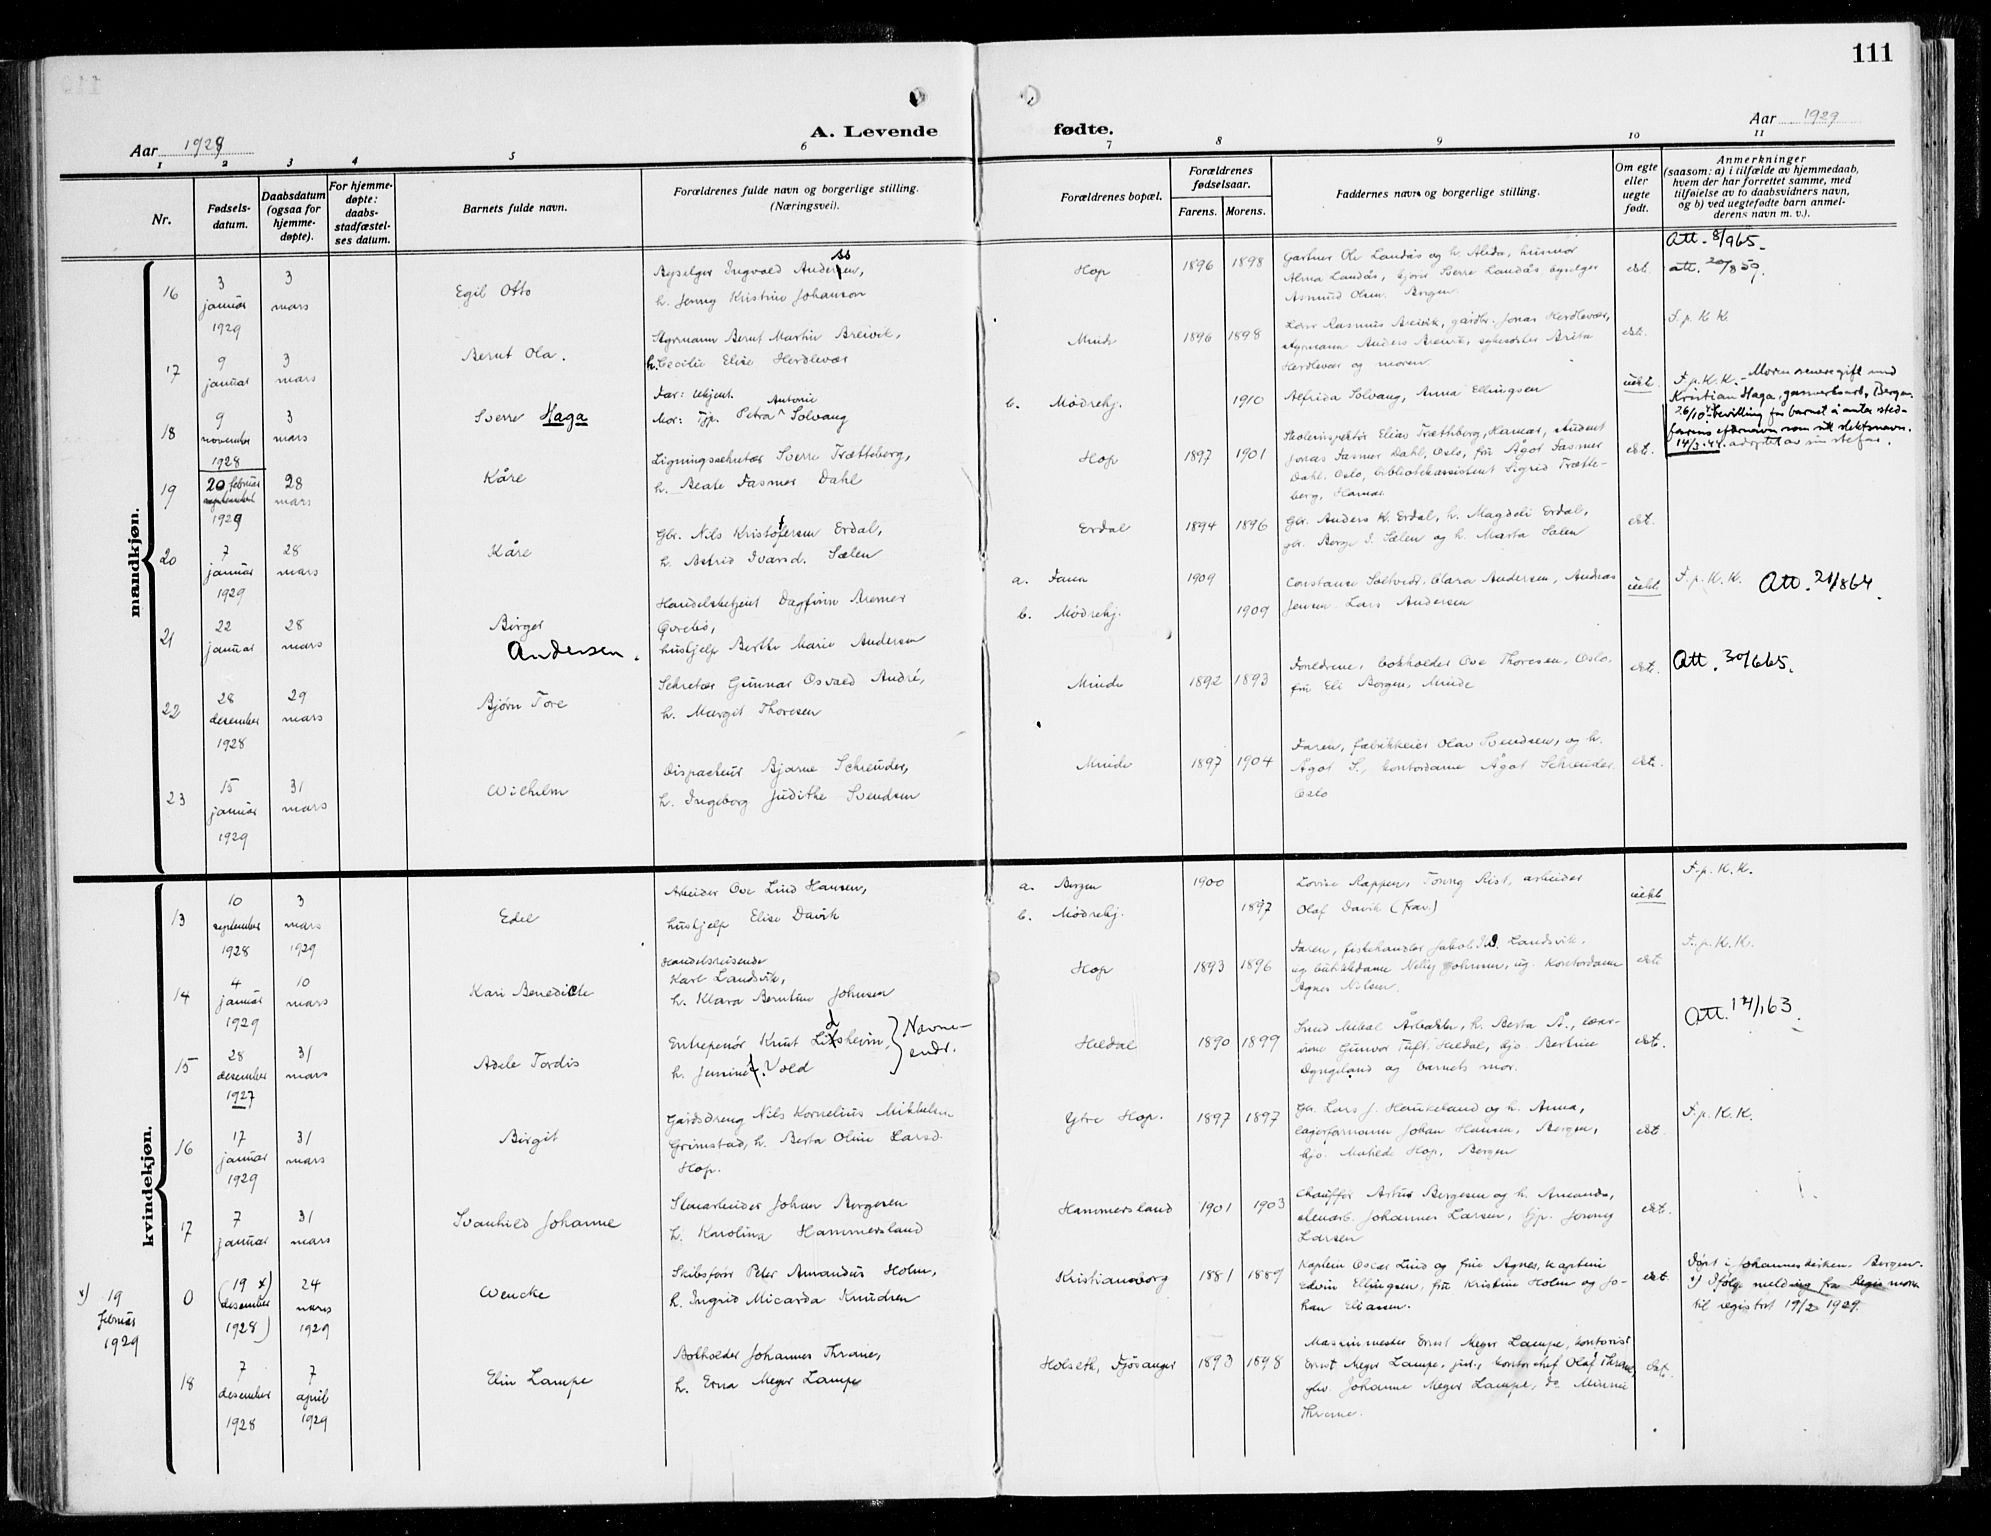 111
A. Levende fødte.
Aar 1928
Aar 1929
1 2 3 4 5 6 7 8 9 10 11
Nr.
Fødsels-
datum.
Daabsdatum
(ogsaa for
hjemme-
døpte).
For hjemme-
døpte:
daabs-
stadfæstel-
ses datum.
Barnets fulde navn.
Forældrenes fulde navn og borgerlige stilling.
(Næringsvei).
Forældrenes bopæl.
Forældrenes
fødselsaar.
Farens. Morens.
Faddernes navn og borgerlige stilling.
Om egte
eller
uegte
født.
Anmerkninger
(saasom: a) i tilfælde av hjemmedaab,
hvem der har forrettet samme, med
tilføielse av to daabsvidners navn,
og b) ved uegtefødte barn anmel-
derens navn m. v.).
mandkjøn.
16
3
januar
1929
3
mars
Egil Otto
Ingvald Anderssen,
h. Jenny Kristine Johanson
Hop
1896 1898
Gartner Ole Landås og h. Alida, husmor
Alma Landås, Sverre Landås
Asmund Olsen Bergen
ekt.
Att. 8/965.
att. 20/859.
17
9
januar
3
mars
Bernt Ola.
Styrmann Bernt Martin Breivik,
h. Cecilie Elise Herdlevær
Minde
1896 1898
Rasmus Breivik, gårdbr. Jonas Herdlevær,
styrmann Anders Breivik,
Herdlevær og moren
ekt.
F. p. K. K.
18
9
november
1928
3
mars
Sverre Haga
Far: Ukjent.
Mor: Tjp. Petra Antonie Solvang
b. Mødrehj.
1910
Alfrida Solvang, Anna Ellingsen
uekt.
F. p. K. K. - Moren senere gift med
Kristian Haga, Bergen.
bevilling for barnet å anta sted-
farens efternavn som sitt slektsnavn.
14/3.44. adoptert av sin stefar.
19
20 februar
september
1929
28
mars
Kåre
Ligningssekretær Sverre Trætteberg,
h. Beate Fasmer Dahl
Hop
1897 1901
Skoleinspektør Elias Trætteberg, Hamar, student
Jonas Fasmer Dahl, Oslo, fru Ågot Fasmer
Dahl, Oslo, bibliotekassistent Sigrid Trætte-
berg, Hamar.
ekt.
20
7
januar
1929
28
mars
Kåre
Gbr. Nils Kristoffersen Erdal,
h. Astrid Ivarsd. Sælen
Erdal
1894 1896
Gbr. Anders K. Erdal, h. Magdeli Erdal,
gbr. Berge I. Sælen og h. Marta Sælen
ekt.
21
22
januar
28
mars
Birger
Andersen.
Handelsbetjent Dagfinn Aremer
Øvrebø,
hushjelp Berthe Marie Andersen
a. Fana
b. Mødrehj.
1909
1909
Constanse Soltvedt, Clara Andersen, Andreas
Jensen, Lars Andersen
uekt.
F. p. K. K. Att. 21/864.
22
28
desember
1928
29
mars
Bjørn Tore
Sekretær Gunnar Osvald André,
h. Margit Thoresen
Minde
1892 1893
Foreldrene, bokholder Ove Thoresen, Oslo,
fru Eli Borgen, Minde
ekt.
Att. 30/665.
23
15
januar
1929
31
mars
Wilhelm
Dispachør Bjarne Schreuder,
h. Ingeborg Judithe Svendsen
Minde
1897 1904
Faren, fabrikkeier Olav Svendsen, og h.
Ågot S., kontordame Ågot Schreuder
Oslo
ekt.
kvindekjøn.
13
10
september
1928
3
mars
1929
Edel
Arbeider Ove Lind Hansen,
hushjelp Elise Davik
a. Bergen
b. Mødrehj.
1900
1897
Lovise Rappen, Tonny Rist, arbeider
Olaf Davik (frav.)
uekt
F. p. K. K.
14
4
januar
1929
10
mars
Kari Benedicte
Handelsreisende
Karl Landsvik,
h. Klara Berntine Johnsen
Hop
1893 1896
Faren, fiskehandler Jakob Landsvik,
ug. butikkdame Nelly Johnsen, ug. kontordame
Agnes Nilsen.
ekt
F. p. K. K.
15
28
desember
1927
31
mars
Adele Tordis
Entrepenør Knut Lidsheim,
h. Jensine Vold
Navne-
endr.
Heldal
1890 1899
Smed Mikal Årbakke, h. Berta Å., lærer-
inne Gunvor Tuft, Heldal, kjø. Bertine
Dyngeland og barnets mor.
ekt.
Att. 14/163.
16
17
januar
1929
31
mars
Birgit
Gårdsdreng Nils Kornelius Mikkelsen
Grimstad, h. Berta Oline Larsd.
Hop.
Ytre Hop.
1897 1897
Gbr. Lars J. Haukeland og h. Anna,
lagerformann Johan Hansen, Bergen,
kjø. Matilde Hop, Bergen
ekt.
F. p. K. K.
17
7
januar
31
mars
Svanhild Johanne
Stenarbeider Johan Børgesen
h. Karolina Hammersland
Hammersland
1901 1903
Chauffør Artur Børgesen og h. Amanda,
stenarb. Johannes Larsen, tjp. Jenny
Larsen
ekt.
x) 19
februar
1929
0
(19 x)
desember
1928)
24
mars
1929
Wencke
Skibsfører Peter Amandus Holm,
h. Ingrid Micarda Knudsen
Kristiansborg
1881 1889
Kaptein Oscar Lind og frue Agnes, kaptein
Edvin Ellingsen, fru Kristine Holm og Jo-
han Eliassen.
ekt.
Døpt i Johanneskirken. Bergen.
x) Ifølg. melding fra
til registret 19/2 1929.
18
7
desember
1928
7
april
1929
Elin Lampe
Bokholder Johannes Thrane,
h. Erna Meyer Lampe
Holseth, Fjøsanger
1893 1898
Maskinmester Ernst Meyer Lampe, kontorist
Ernst Meyer Lampe, jun., kontorchef Olaf Thrane,
Johanne Meyer Lampe, do Minnie
Thrane.
ekt.